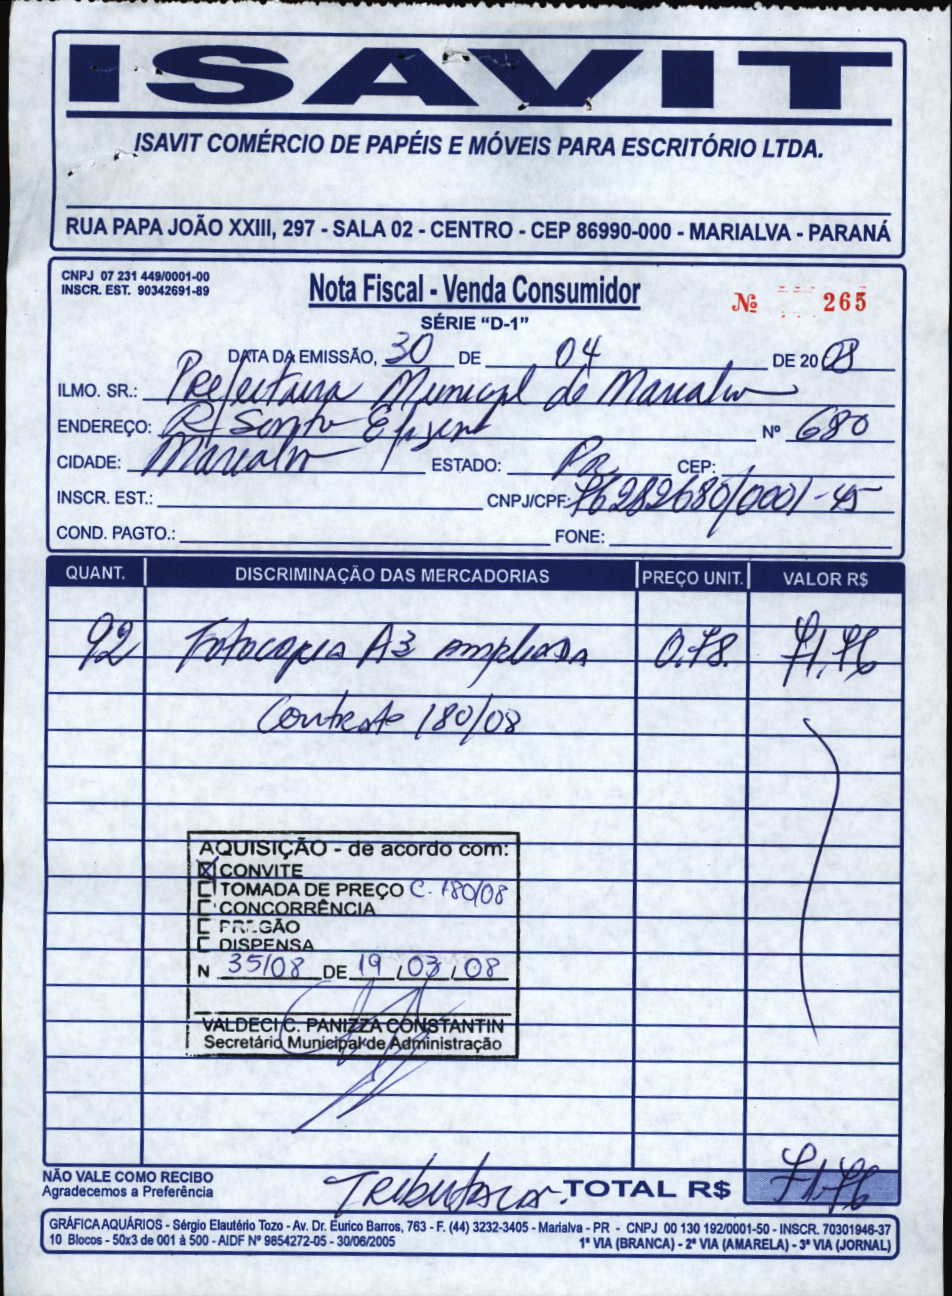 ISAVIT
ISAVIT COMÉRCIO DE PAPÉIS E MÓVEIS PARA ESCRITÓRIO LTDA.
RUA PAPA JOÃO XXIII, 297 - SALA 02 - CENTRO - CEP 86990-000 - MARIALVA - PARANÁ
CNPJ 07 231 449/0001-00
INSCR. EST. 90342691-89
Nota Fiscal - Venda Consumidor
Nº 265
SÉRIE “D-1”
DATA DA EMISSÃO, 30 DE 04 DE 2008
ILMO. SR.: Prefeitura Municipal de Marialva
ENDEREÇO: R Santa Efigenia Nº 680
CIDADE: Marialva ESTADO: Pr. CEP:
INSCR. EST.: CNPJ/CPF: 76282680/0001-45
COND. PAGTO.: FONE:
QUANT. DISCRIMINAÇÃO DAS MERCADORIAS PREÇO UNIT. VALOR R$
92 Fotocopia A3 ampliada 0,78. 71,76
Contrato 180/08
AQUISIÇÃO - de acordo com:
CONVITE
TOMADA DE PREÇO C. 180/08
CONCORRÊNCIA
PREGÃO
DISPENSA
N 35/08 DE 19 / 03 / 08
VALDECI C. PANIZZA CONSTANTIN
Secretário Municipal de Administração
NÃO VALE COMO RECIBO
Agradecemos a Preferência
Tributacao. TOTAL R$ 71,76
GRÁFICA AQUÁRIOS - Sérgio Elautério Tozo - Av. Dr. Eurico Barros, 763 - F. (44) 3232-3405 - Marialva - PR - CNPJ 00 130 192/0001-50 - INSCR. 70301946-37
10 Blocos - 50x3 de 001 à 500 - AIDF Nº 9854272-05 - 30/06/2005 1ª VIA (BRANCA) - 2ª VIA (AMARELA) - 3ª VIA (JORNAL)